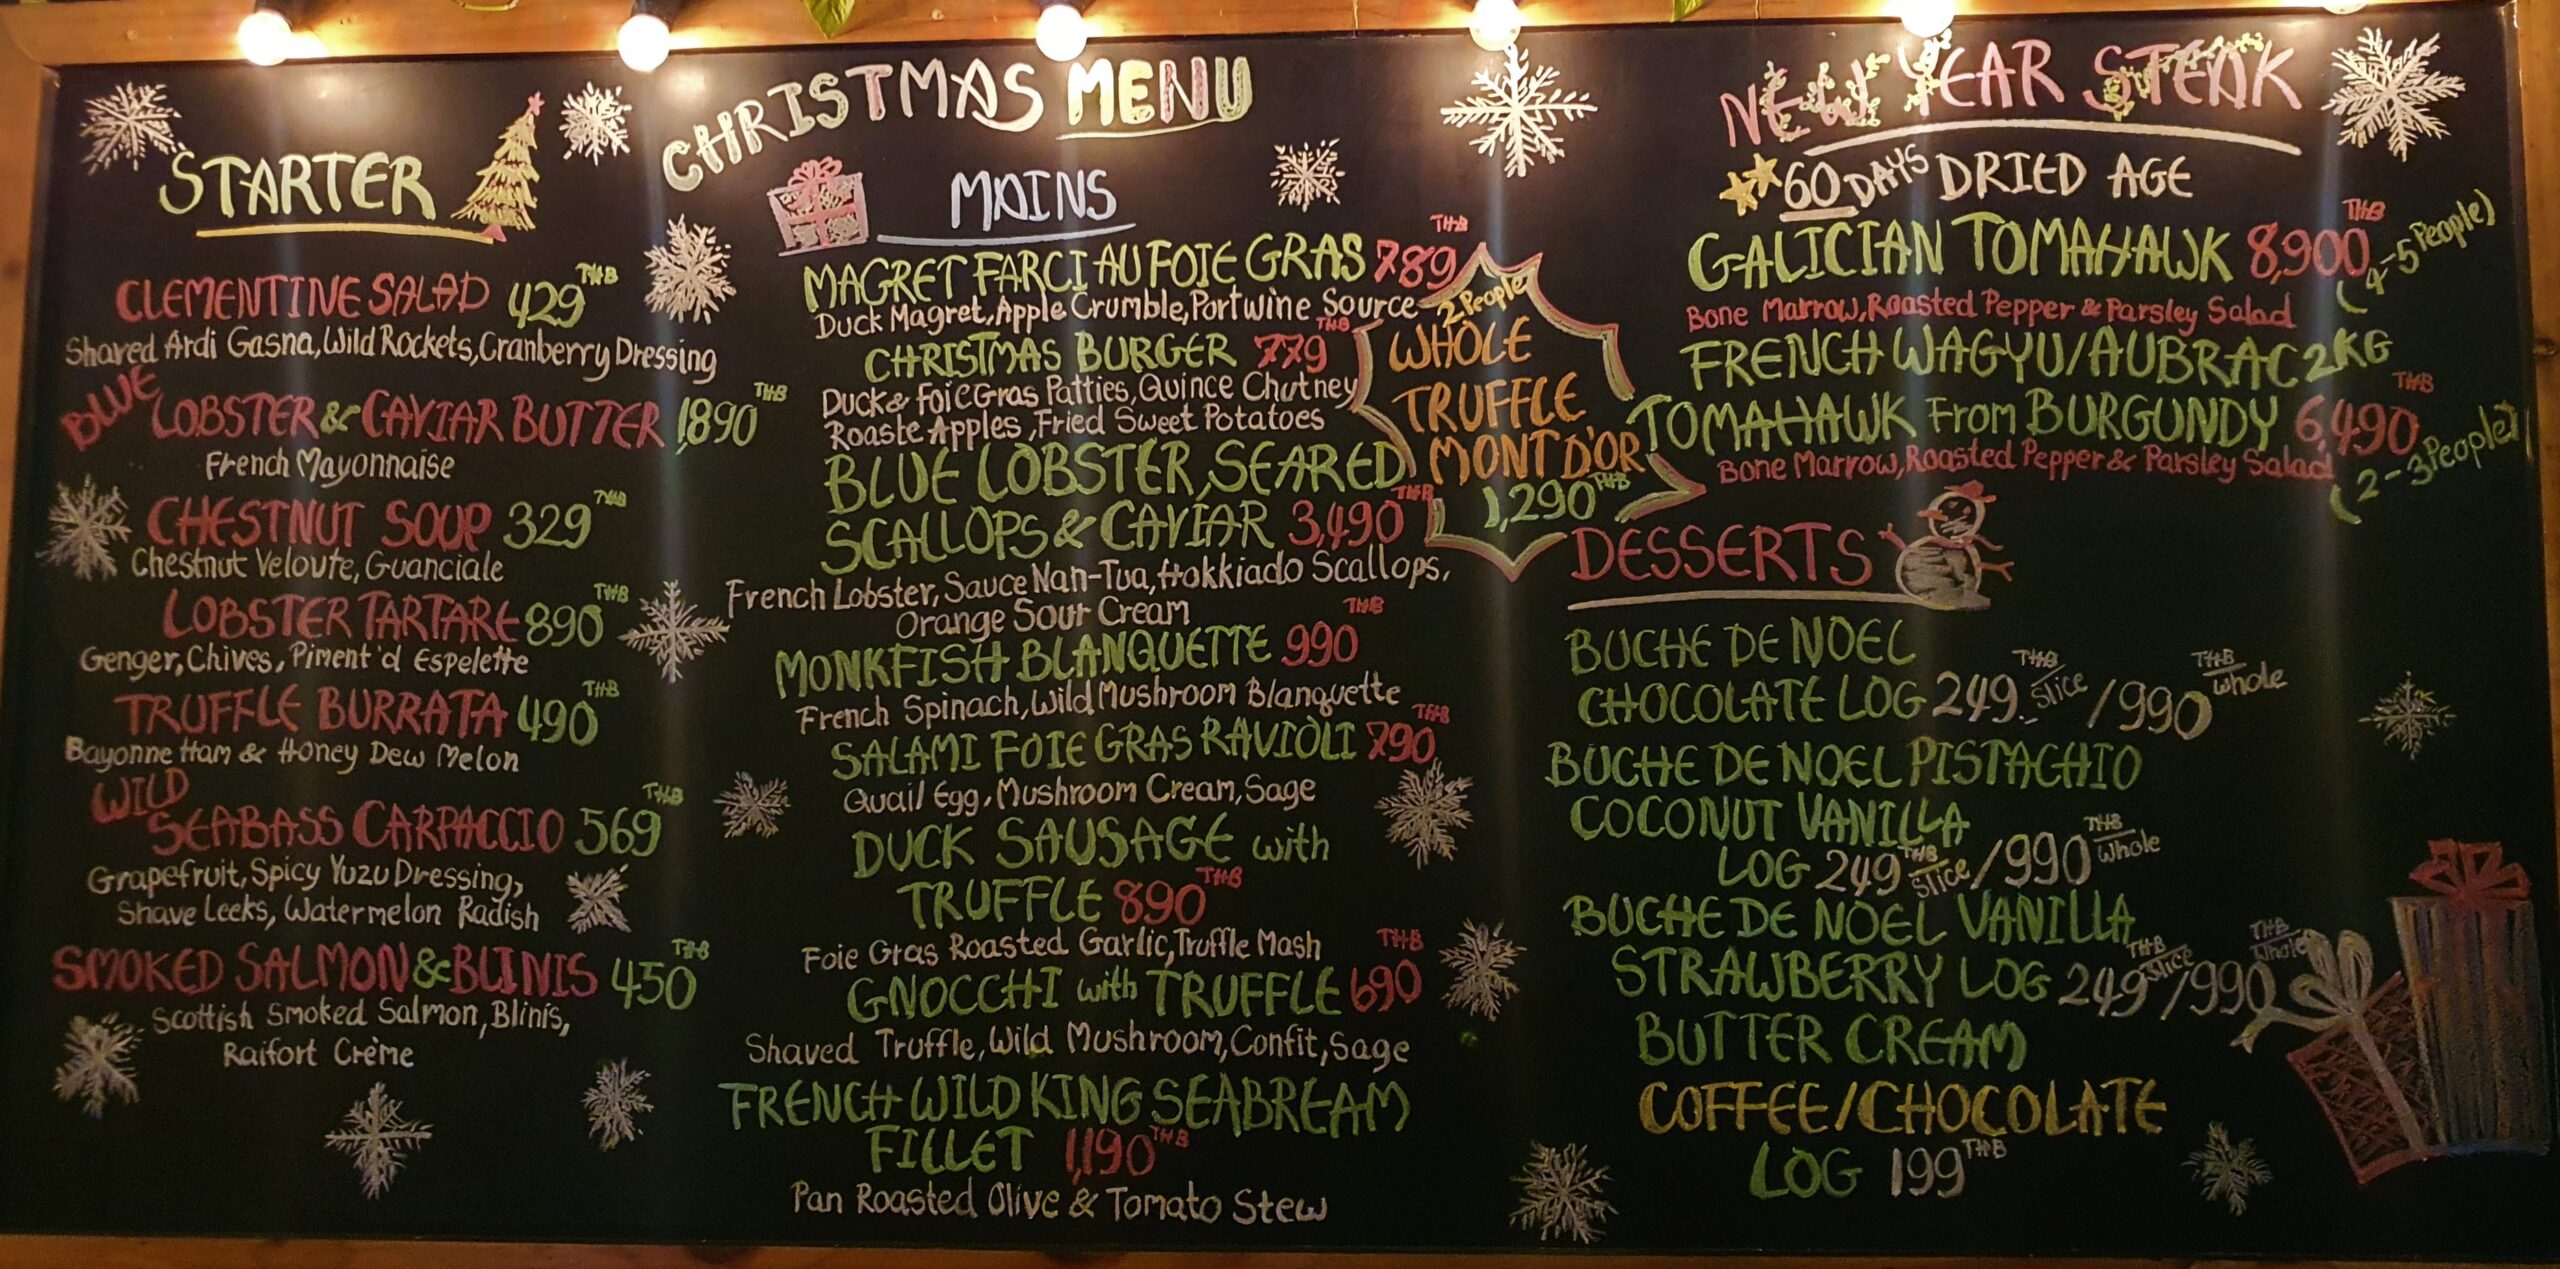 CHRISTMAS MENU
STARTER
CLEMENTINE SALAD 429 THB
Shaved Ardi Gasna, Wild Rockets, Cranberry Dressing
BLUE
LOBSTER & CAVIAR BUTTER 1,890 THB
French Mayonnaise
CHESTNUT SOUP 329 THB
Chestnut Veloute, Guanciale
LOBSTER TARTARE 890 THB
Genger, Chives, Piment'd Espelette
TRUFFLE BURRATA 490 THB
Bayonne Ham & Honey Dew Melon
WILD
SEABASS CARPACCIO 569 THB
Grapefruit, Spicy Yuzu Dressing,
Shave Leeks, Watermelon Radish
SMOKED SALMON & BLINIS 450 THB
Scottish Smoked Salmon, Blinis,
Raifort Crème
MAINS
MAGRET FARCI AU FOIE GRAS 789 THB
Duck Magret, Apple Crumble, Portwine Source
CHRISTMAS BURGER 779 THB
Duck & Foie Gras Patties, Quince Chutney
Roaste Apples, Fried Sweet Potatoes
BLUE LOBSTER, SEARED
SCALLOPS & CAVIAR 3,490 THB
French Lobster, Sauce Nan-Tua, Hokkiado Scallops,
Orange Sour Cream
MONKFISH BLANQUETTE 990 THB
French Spinach, Wild Mushroom Blanquette
SALAMI FOIE GRAS RAVIOLI 790 THB
Quail Egg, Mushroom Cream, Sage
DUCK SAUSAGE with
TRUFFLE 890 THB
Foie Gras Roasted Garlic, Truffle Mash
GNOCCHI with TRUFFLE 690 THB
Shaved Truffle, Wild Mushroom, Confit, Sage
FRENCH WILD KING SEABREAM
FILLET 1,190 THB
Pan Roasted Olive & Tomato Stew
2 People
WHOLE
TRUFFLE
MONT D'OR
1,290 THB
NEW YEAR STEAK
60 DAYS DRIED AGE
GALICIAN TOMAHAWK 8,900 THB
(4-5 People)
Bone Marrow, Roasted Pepper & Parsley Salad
FRENCH WAGYU/AUBRAC 2KG
TOMAHAWK From BURGUNDY 6,490 THB
Bone Marrow, Roasted Pepper & Parsley Salad
(2-3 People)
DESSERTS
BUCHE DE NOEL
CHOCOLATE LOG 249.- THB slice / 990 THB whole
BUCHE DE NOEL PISTACHIO
COCONUT VANILLA
LOG 249 THB slice / 990 THB whole
BUCHE DE NOEL VANILLA
STRAWBERRY LOG 249 THB slice / 990 THB whole
BUTTER CREAM
COFFEE/CHOCOLATE
LOG 199 THB